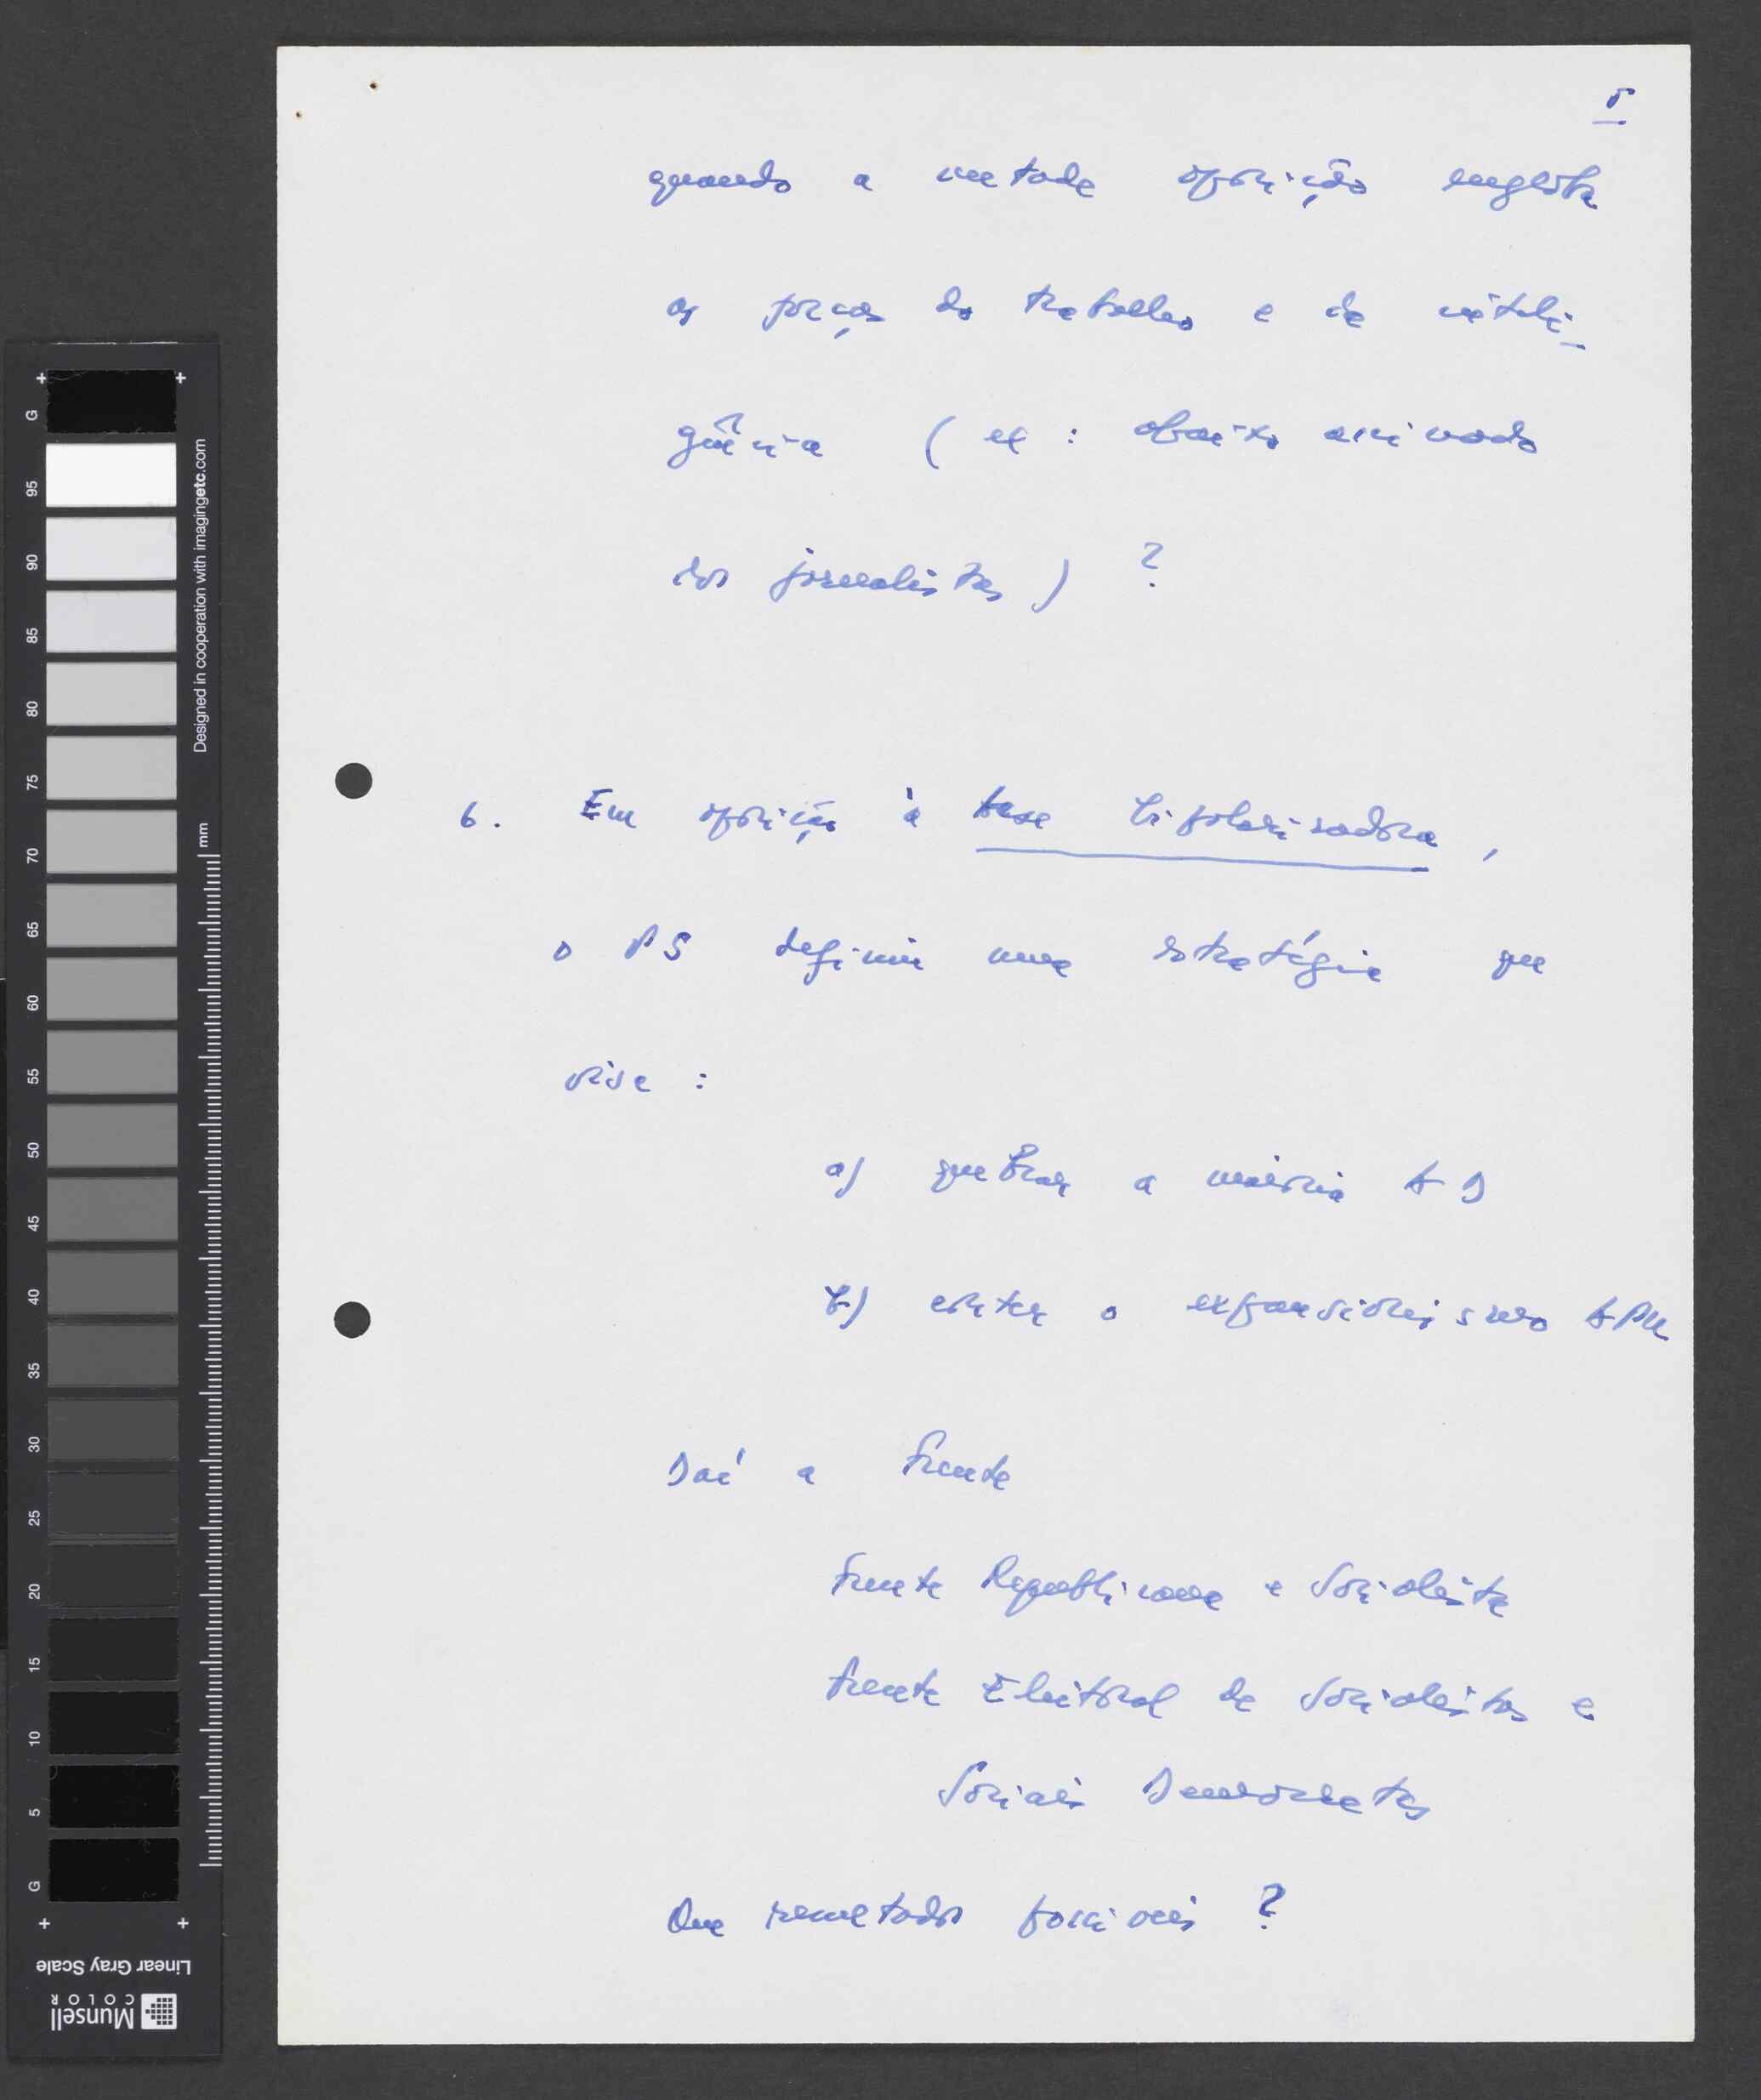 5
quando a metade oposição engloba
as forças do trabalho e da inteli-
gência (ex : abaixo assinado
dos jornalistas) ?
6. Em oposição à tese bipolarizadora ,
o PS definiu uma estratégia que
visa :
a) quebrar a maioria AD
b) conter o expansionismo APU
Daí a frente
Frente Republicana e Socialista
Frente Eleitoral de Socialistas e
Sociais Democratas
Que resultados possíveis ?
G
95
90
85
80
75
70
65
60
55
50
45
40
35
30
25
20
15
10
5
G
Designed in cooperation with imagingetc.com
mm
Linear Gray Scale
Munsell
COLOR